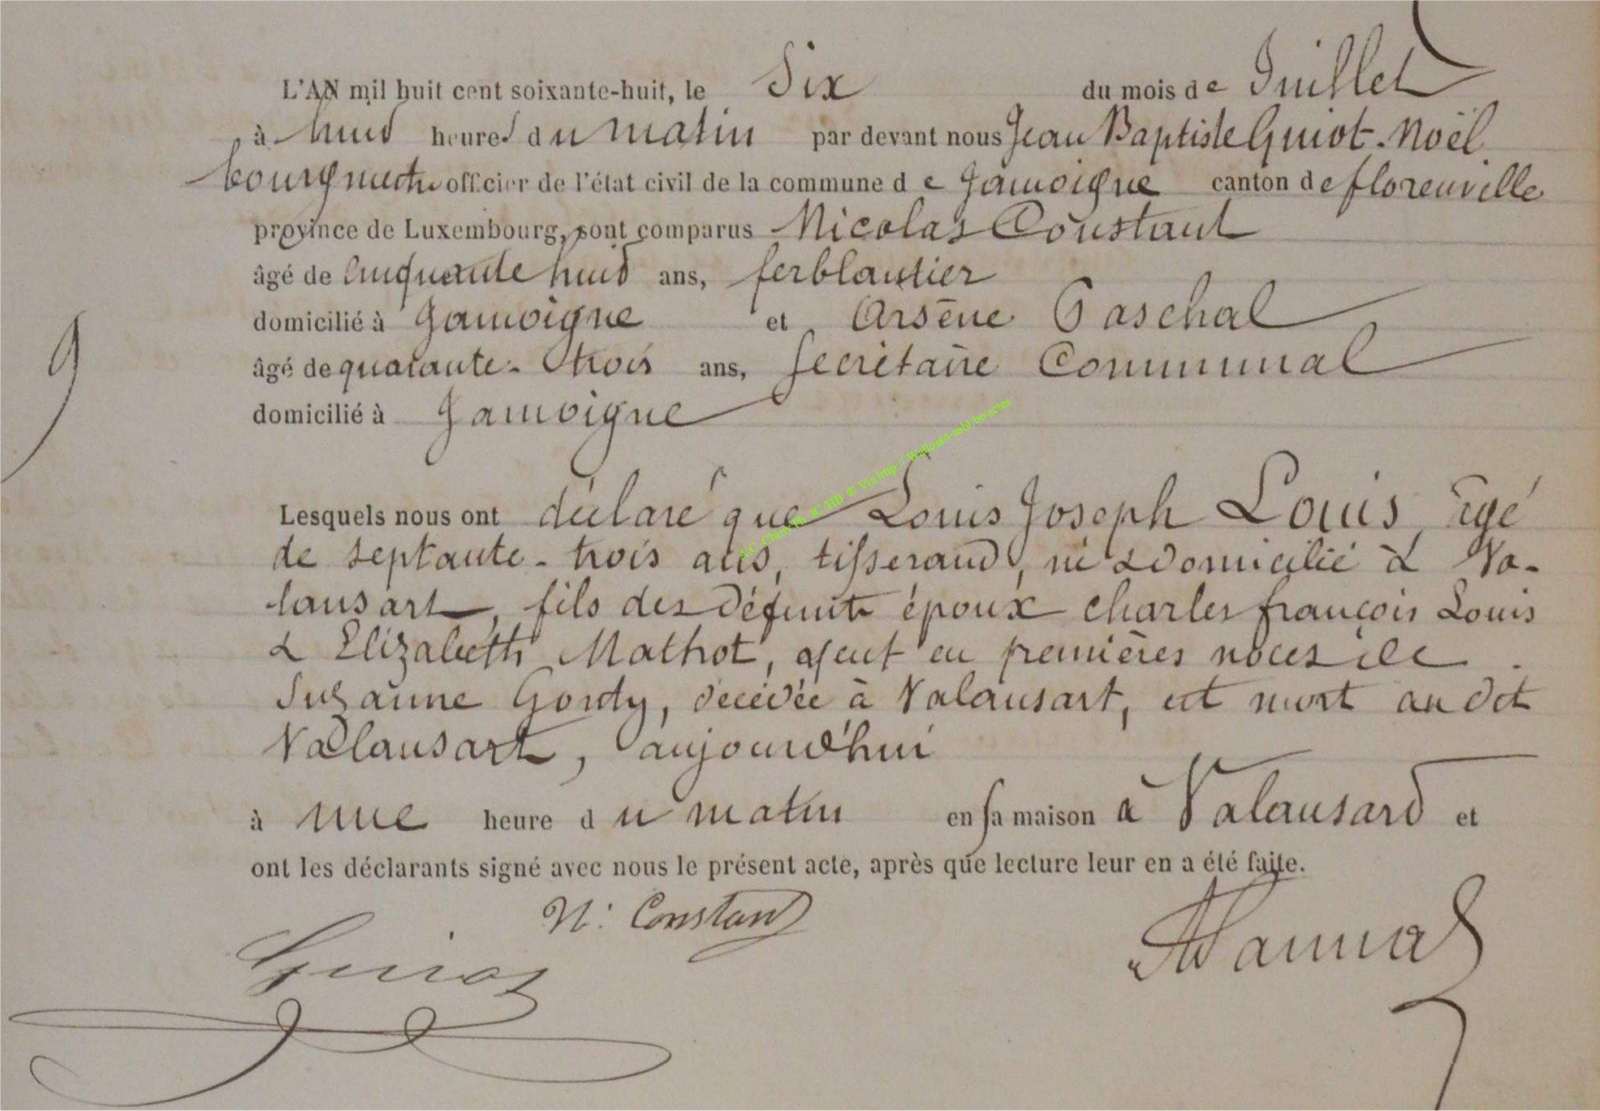 L'AN mil huit cent soixante-huit, le Six du mois de Juillet
à huit heures du matin par devant nous Jean Baptiste Guiot-Noël
bourgmestre officier de l'état civil de la commune de Jamoigne canton de florenville
province de Luxembourg, sont comparus Nicolas Constant
âgé de cinquante huit ans, ferblantier
domicilié à Jamoigne et Arsène Paschal
âgé de quarante-trois ans, Secrétaire Communal
domicilié à Jamoigne
9
Lesquels nous ont déclaré que Louis Joseph Louis, âgé
de septante-trois ans, tisserand, né & domicilié à Va-
lansart, fils des défunts époux charles françois Louis
& Elizabeth Mathot, veuf en premières noces de
Suzanne Gordy, décédée à Valansart, est mort au dit
Valansart, aujourd'hui
à une heure du matin en sa maison à Valansard et
ont les déclarants signé avec nous le présent acte, après que lecture leur en a été faite.
N: Constant
Guiot